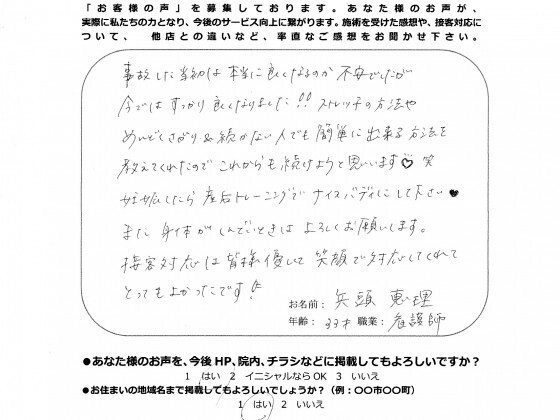 「お客様の声」を募集しております。あなた様のお声が、
実際に私たちの力となり、今後のサービス向上に繋がります。施術を受けた感想や、接客対応に
ついて、 他店との違いなど、率直なご感想をお聞かせ下さい。
事故した当初は本当に良くなるのか不安でしたが
今ではすっかり良くなりました!! ストレッチの方法や
めんどくさがり&続かない人でも簡単に出来る方法を
教えてくれたので これからも続けようと思います♡ 笑
出産したら 産后トレーニングで ナイスバディにして下さい♥
また 身体がしんどいときは よろしくお願いします。
接客対応は皆様優しく 笑顔で対応してくれて
とってもよかったです!
お名前: 矢頭 恵理
年齢: 33才 職業: 看護師
●あなた様のお声を、今後HP、院内、チラシなどに掲載してもよろしいですか?
1 はい 2 イニシャルならOK 3 いいえ
●お住まいの地域名まで掲載してもよろしいでしょうか?(例:〇〇市〇〇町)
1 はい 2 いいえ